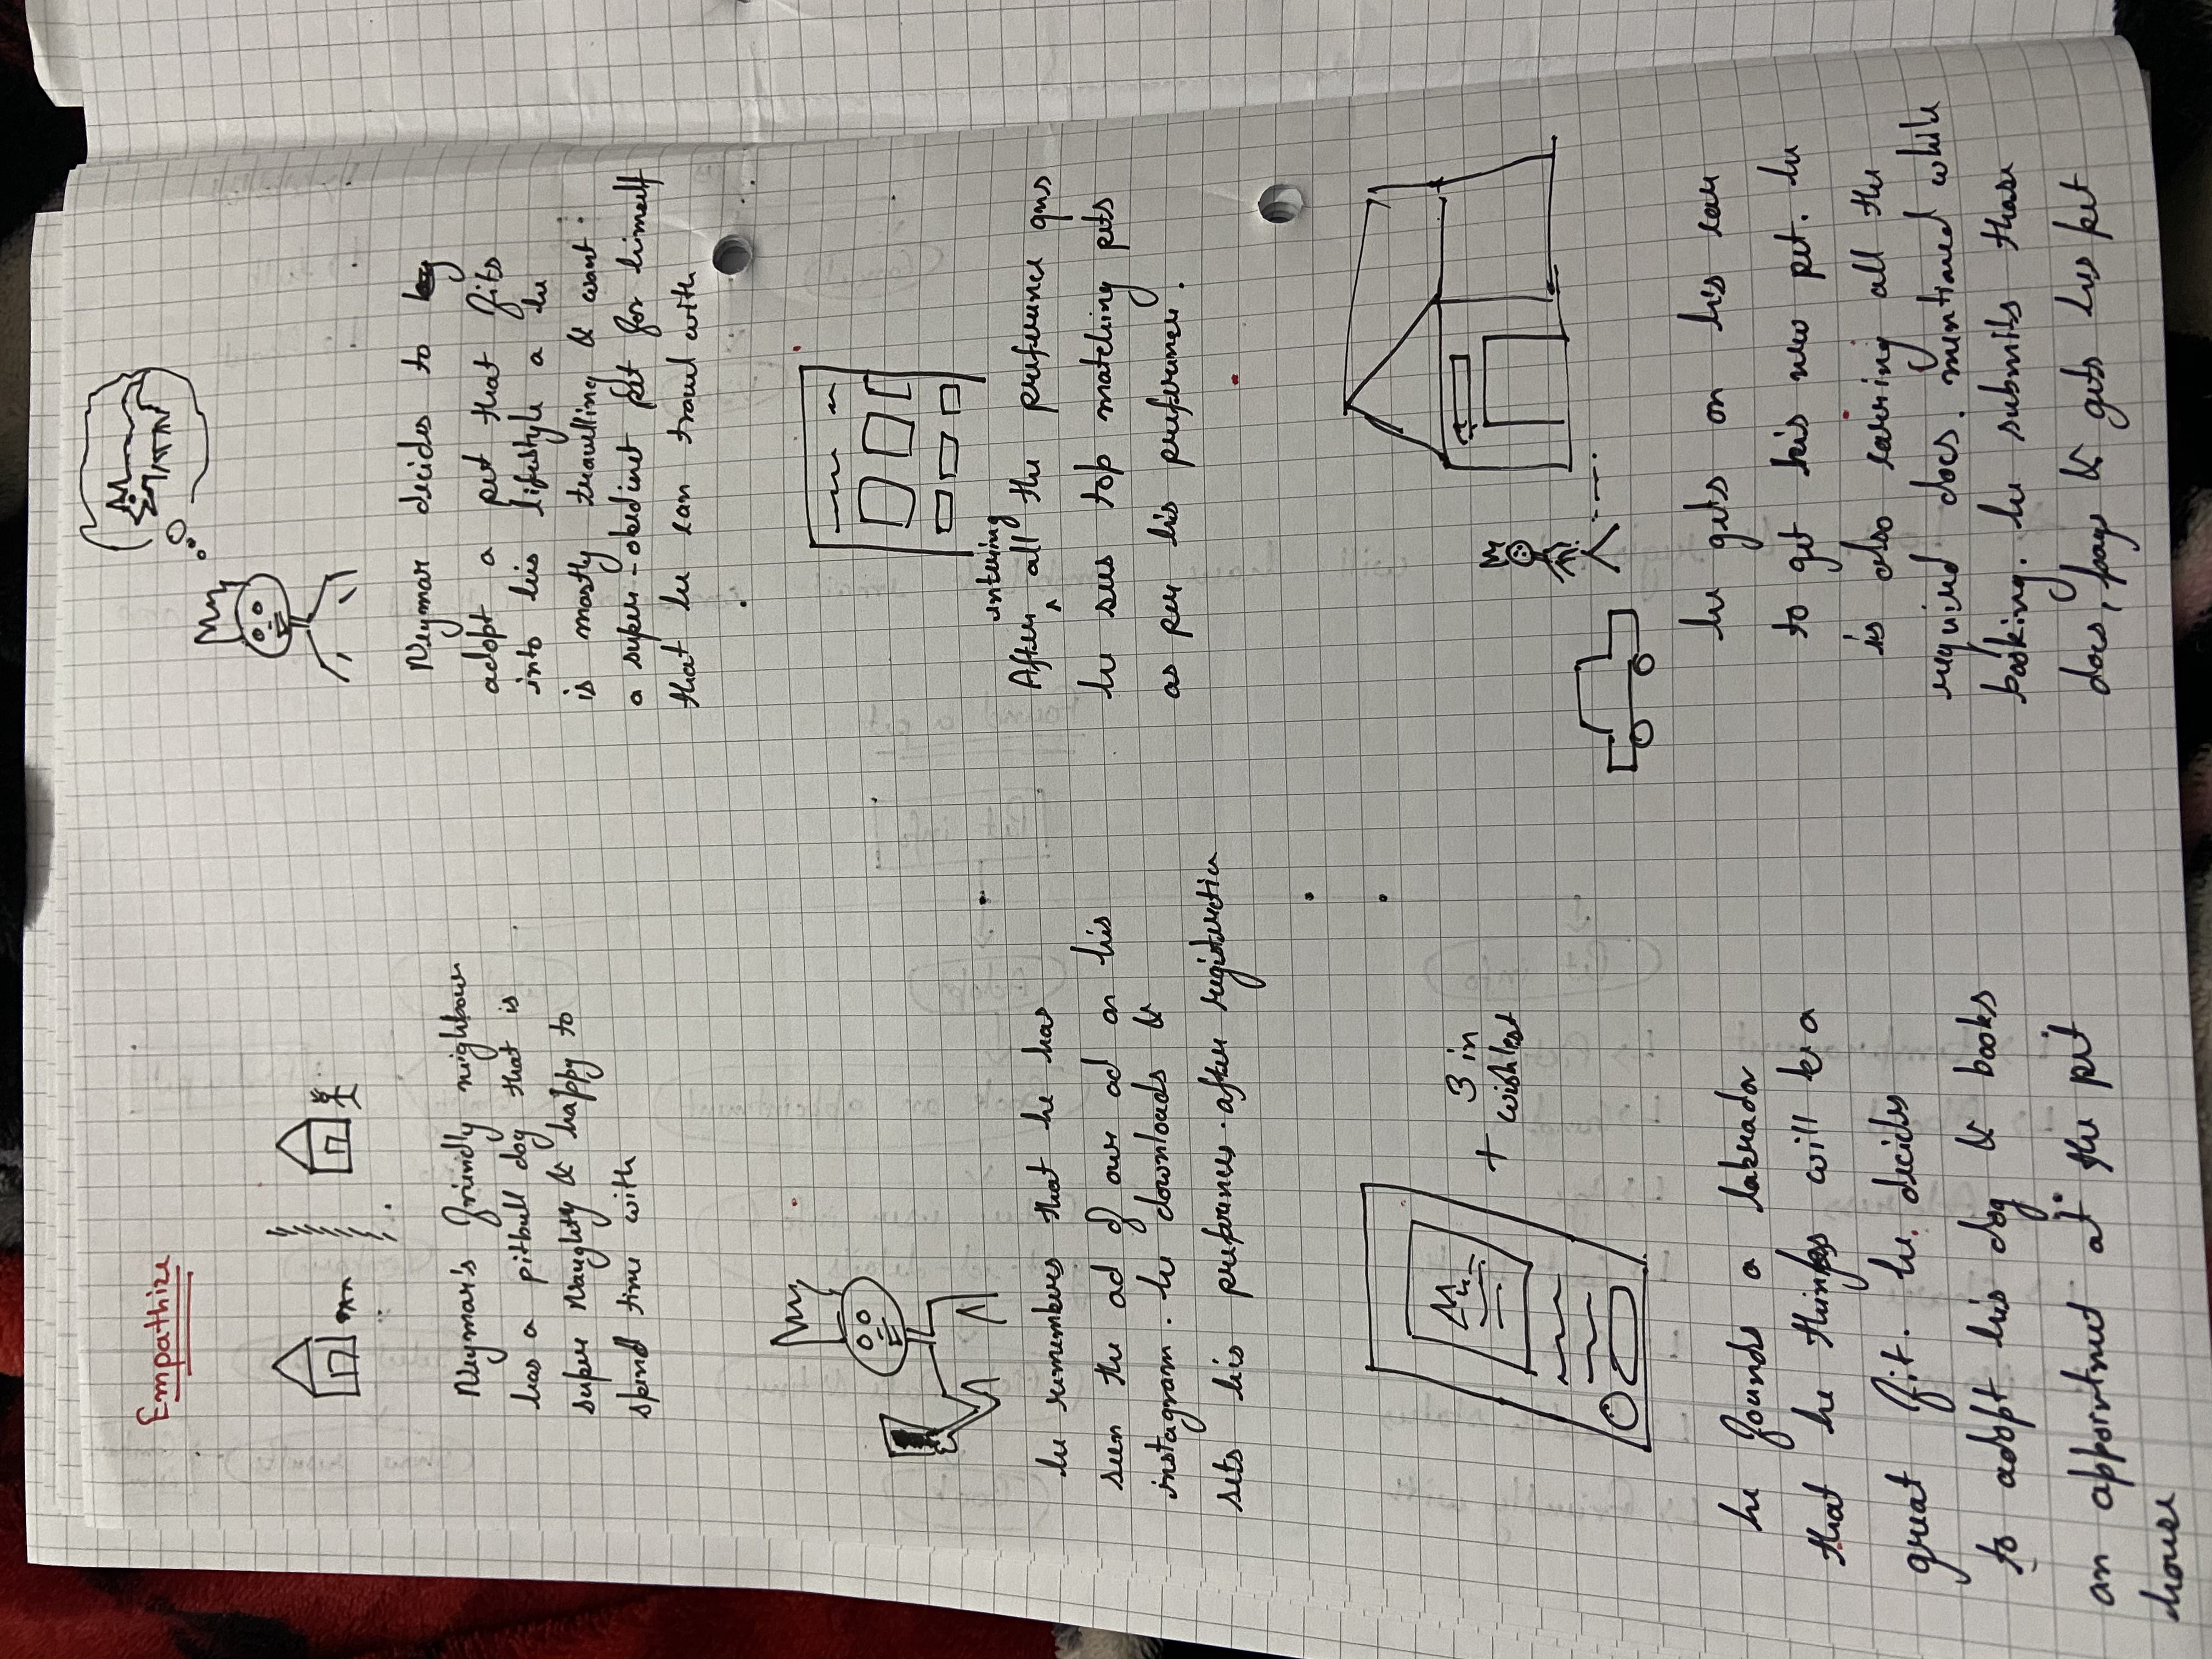 Empathize
Neymar's friendly neighbour
has a pitbull dog that is
super Naughty & happy to
spend time with
Neymar decides to
adopt a pet that fits
into his lifestyle a he
is mostly travelling & want
a super-obedinet pet for himself
that he can travel with
he remembers that he has
seen the ad of our ad on his
instagram. he downloads &
sets his preferences. after registeration
entering
After all the preference qns
he sees top matching pets
as per his preference.
+ 3 in
wishlest
he founds a labrador
that he thinks will be a
great fit. he decides
to adopt his dog & books
an appointnet at the pet
house
he gets on his car
to get his new pet. he
is also carring all the
required docs. mentioned while
booking. he submits those
docs, pays & gets his pet